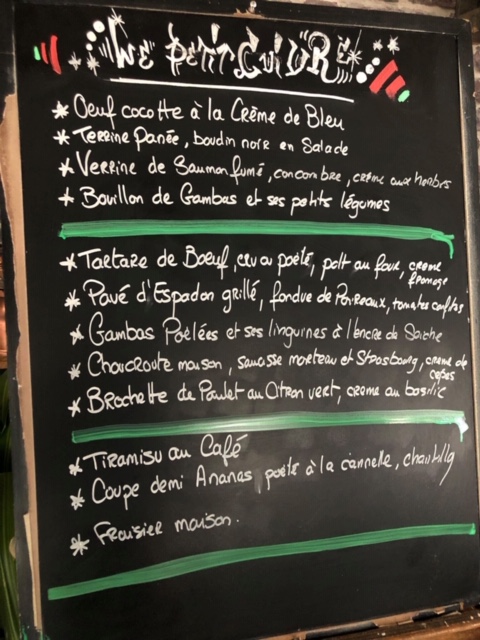 Le Petit Cuivré
* Oeuf cocotte à la Crème de Bleu
* Terrine Panée, boudin noir en Salade
* Verrine de Saumon fumé, concombre, crème aux herbes
* Bouillon de Gambas et ses petits légumes
* Tartare de Boeuf, cru ou poêlé, pdt au four, creme fromage
* Pavé d'Espadon grillé, fondue de Poireaux, tomates confites
* Gambas Poêlées et ses linguines à l'encre de Seiche
* Choucroute maison, saucisse morteau et Strasbourg, creme de cepes
* Brochette de Poulet au Citron vert, creme au basilic
* Tiramisu au Café
* Coupe demi Ananas, poêlé à la cannelle, chantilly
* Fraisier maison.